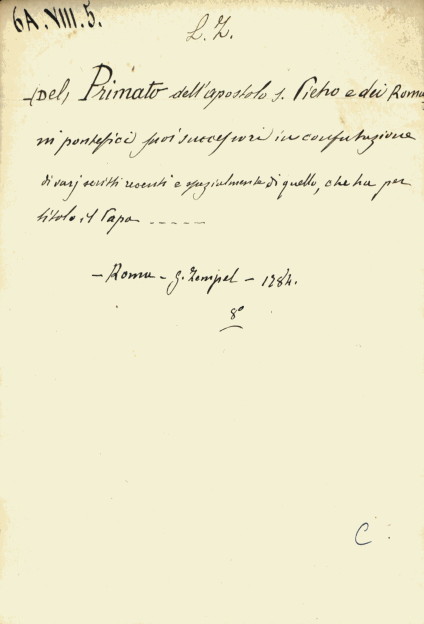 6A.VIII.5.
L. Z.
(Del) Primato dell'apostolo s. Pietro e dei Roma
ni pontefici suoi successori in confutazione
di varj scritti recenti e specialmente di quello, che ha per
titolo il Papa -----
- Roma - G. Zempel - 1784.
8°
C